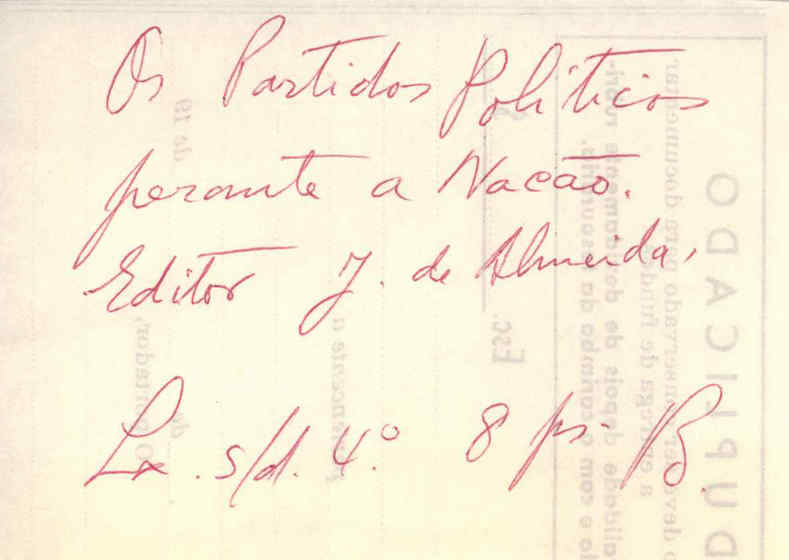 Os Partidos Políticos
perante a Nacão.
Editor J. de Almeida,
Lx. s/d. 4.º 8 ps. B.